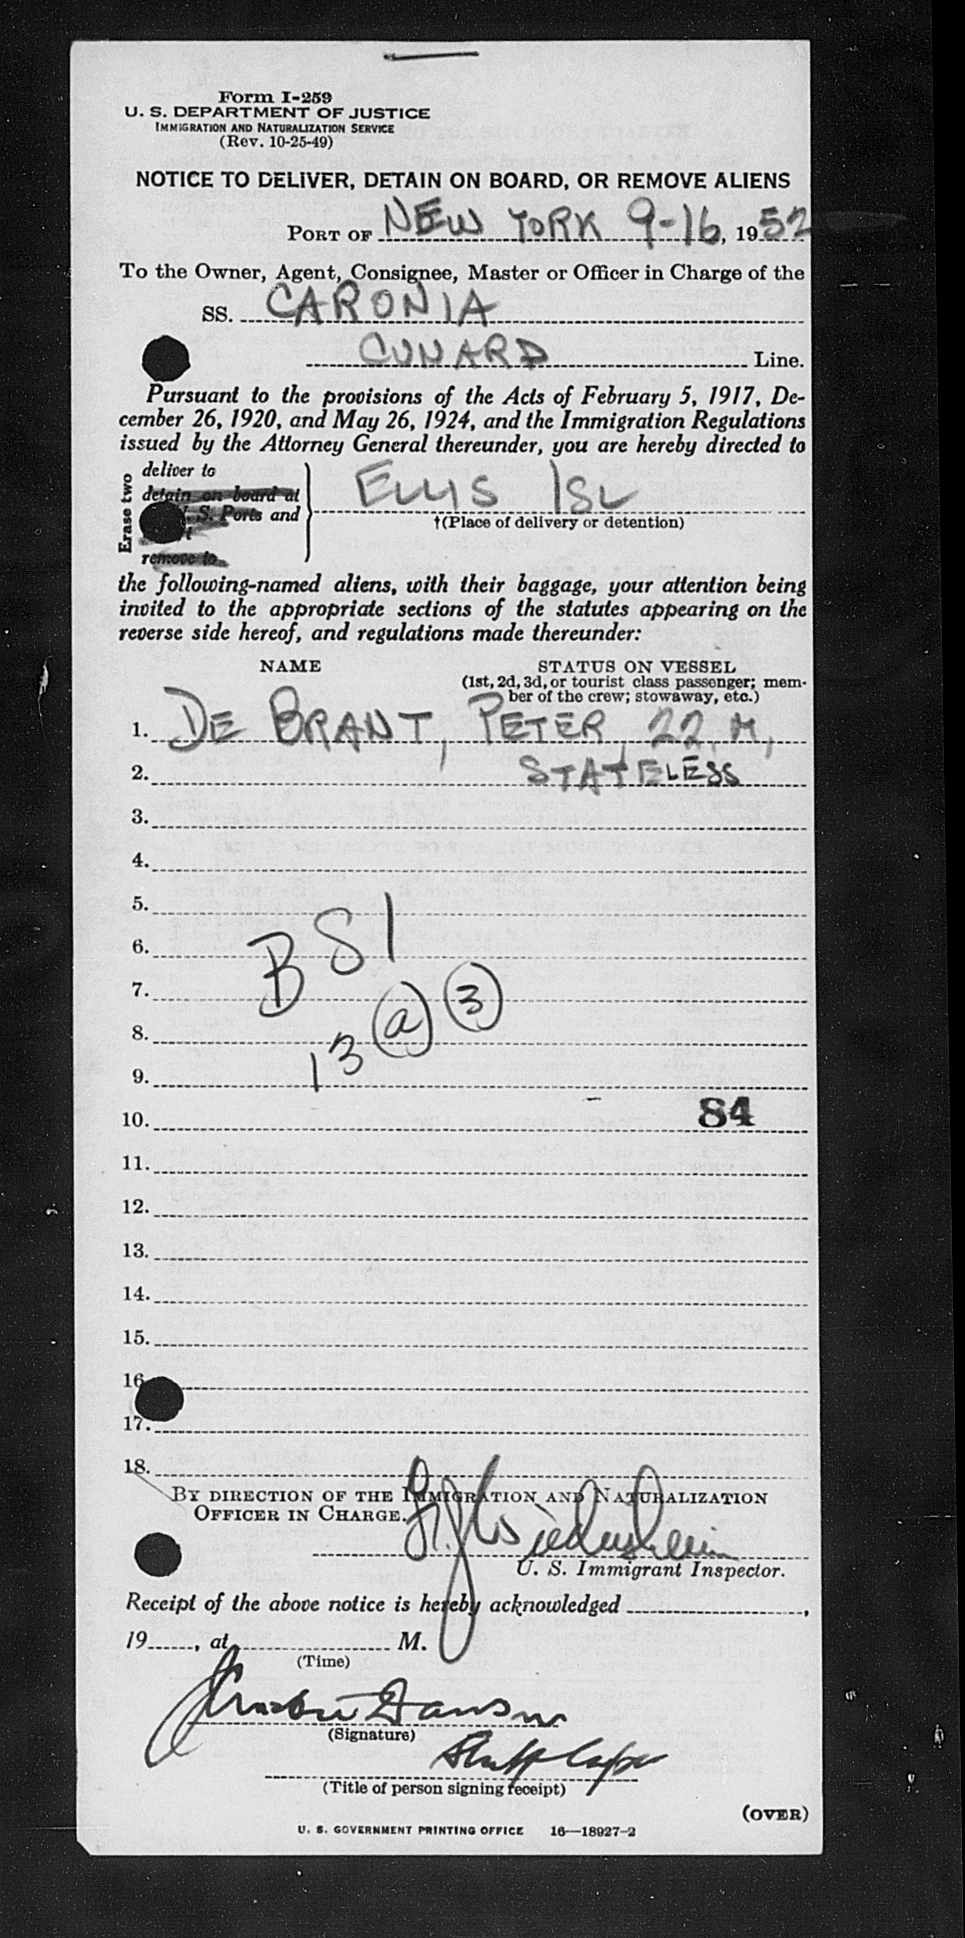 Form I-259
U. S. DEPARTMENT OF JUSTICE
IMMIGRATION AND NATURALIZATION SERVICE
(Rev. 10-25-49)
NOTICE TO DELIVER, DETAIN ON BOARD, OR REMOVE ALIENS
PORT OF NEW YORK 9-16, 1952
To the Owner, Agent, Consignee, Master or Officer in Charge of the
SS. CARONIA
CUNARD Line.
Pursuant to the provisions of the Acts of February 5, 1917, De-
cember 26, 1920, and May 26, 1924, and the Immigration Regulations
issued by the Attorney General thereunder, you are hereby directed to
Erase two
deliver to
detain on board at
S. Ports and
remove to
ELLIS ISL
†(Place of delivery or detention)
the following-named aliens, with their baggage, your attention being
invited to the appropriate sections of the statutes appearing on the
reverse side hereof, and regulations made thereunder:
NAME STATUS ON VESSEL
(1st, 2d, 3d, or tourist class passenger; mem-
ber of the crew; stowaway, etc.)
1. DE BRANT, PETER, 22, M,
2. STATELESS
3.
4.
5.
6.
7.
8.
9.
BSI
13 (a) (3)
10. 84
11.
12.
13.
14.
15.
16
17.
18.
BY DIRECTION OF THE IMMIGRATION AND NATURALIZATION
OFFICER IN CHARGE.
U. S. Immigrant Inspector.
Receipt of the above notice is hereby acknowledged ,
19 , at M.
(Time)
(Signature)
(Title of person signing receipt)
(OVER)
U. S. GOVERNMENT PRINTING OFFICE 16—18927-2